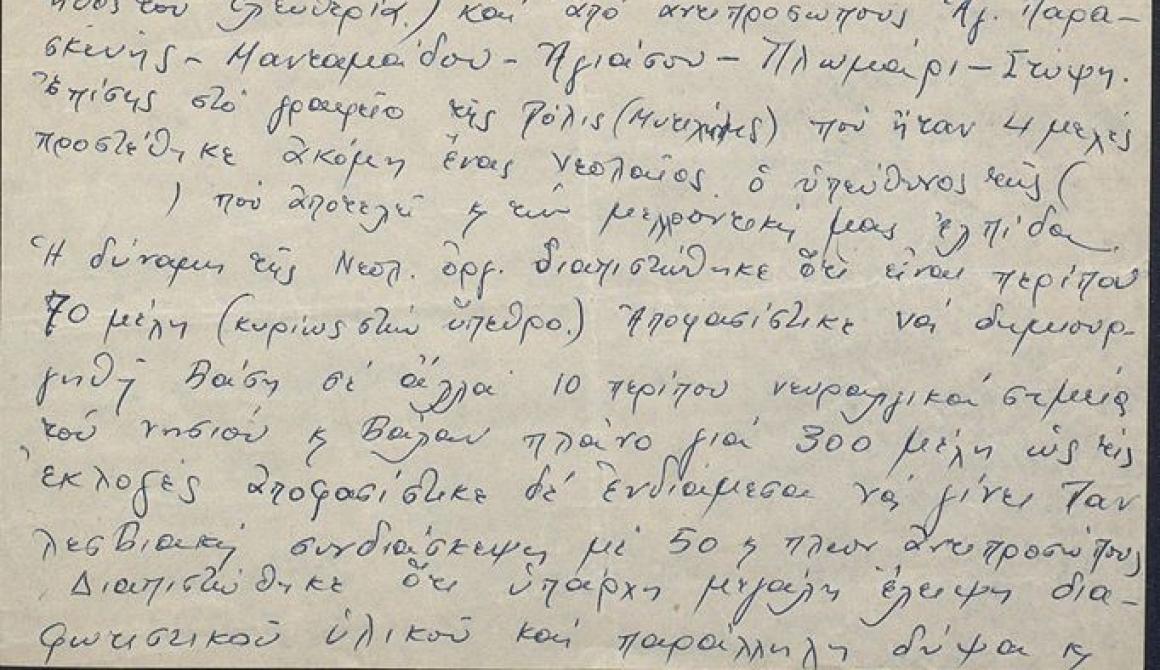 του Ελευθερία.) και από αντιπροσώπους Ἁγ. Παρα-
σκευής - Μανταμάδου - Ἁγιάσου - Πλωμάρι - Στύψη.
Ἐπίσης στό γραφείο τῆς Πόλις (Μυτιλήνης) πού ἦταν 4 μελές
προστέθηκε ἀκόμη ἕνας νεολαίος ὁ ὑπεύθυνος τῆς (
) πού ἀποτελεῖ κ τήν μελλοντική μας ἐλπίδα.
Ἡ δύναμη τῆς Νεολ. ὀργ. διαπιστώθηκε ὅτι εἶναι περίπου
70 μέλη (κυρίως στήν ὕπεθρο.) Ἀποφασίστικε νά δημιουρ-
γηθῆ Βάση σέ ἄλλα 10 περίπου νευραλγικά σημεία
τοῦ νησιοῦ κ Βάλαν πλάνο γιά 300 μέλη ὡς τίς
ἐκλογές ἀποφασίστικε δέ ἐνδιάμεσα νά γίνει Παν
λεσβιακή συνδιάσκεψη μέ 50 κ πλεον ἀντιπροσώπους
Διαπιστώθηκε ὅτι ὑπάρχη μεγάλη ἔλειψη δια-
φωτιστικοῦ ὑλικοῦ καί παράλληλη δύψα κ